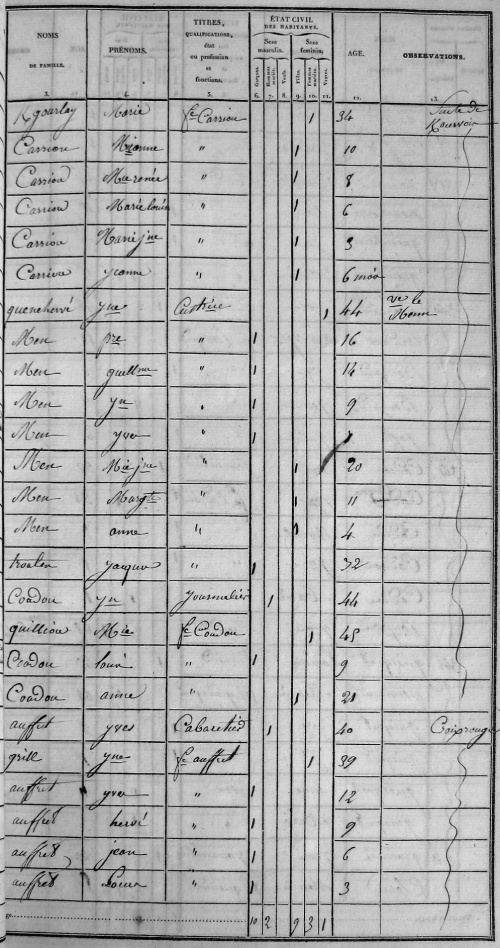 NOMS DE FAMILLE. PRÉNOMS. TITRES, QUALIFICATIONS, état ou profession et fonctions. ÉTAT CIVIL DES HABITANTS. AGE. OBSERVATIONS.
Sexe masculin. Sexe féminin.
Garçons. Hommes mariés. Veufs. Filles. Femmes mariées. Veuves.
3. 4. 5. 6. 7. 8. 9. 10. 11. 12. 13.
Kgourlay Marie fe Carriou 1 34 Suite de
Carriou Mianne " 1 10
Carriou Mie renée " 1 8
Carriou Marie louise " 1 6
Carriou Marie jne " 1 3
Carriou yeanne " 1 6 mois
quenehervé yne 1 44 ve le Menn
Men pre " 1 16
Men guillme " 1 14
Men yn " 1 9
Men yves " 1
Men Mie jne " 1 20
Men Margte " 1 11
Men anne " 1 4
yacques " 1 32
Coadou yn journalier 1 44
quilliou Mie fe Coadou 1 45
Coadou louis " 1 9
Coadou anne " 1 21
auffret yves Cabaretier 1 40
grill yne fe auffret 1 39
auffret yves " 1 12
auffret hervé " 1 9
auffret jean " 1 6
auffret Louis " 1 3
10 2 9 3 1